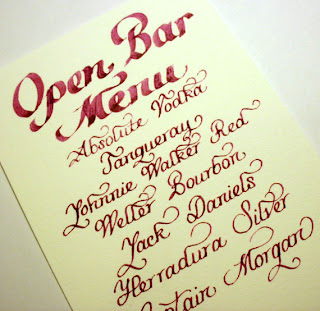 Open Bar
Menu
Absolute Vodka
Tangueray
Johnnie Walker Red
Weller Bourbon
Jack Daniels
Herradura Silver
Captain Morgan